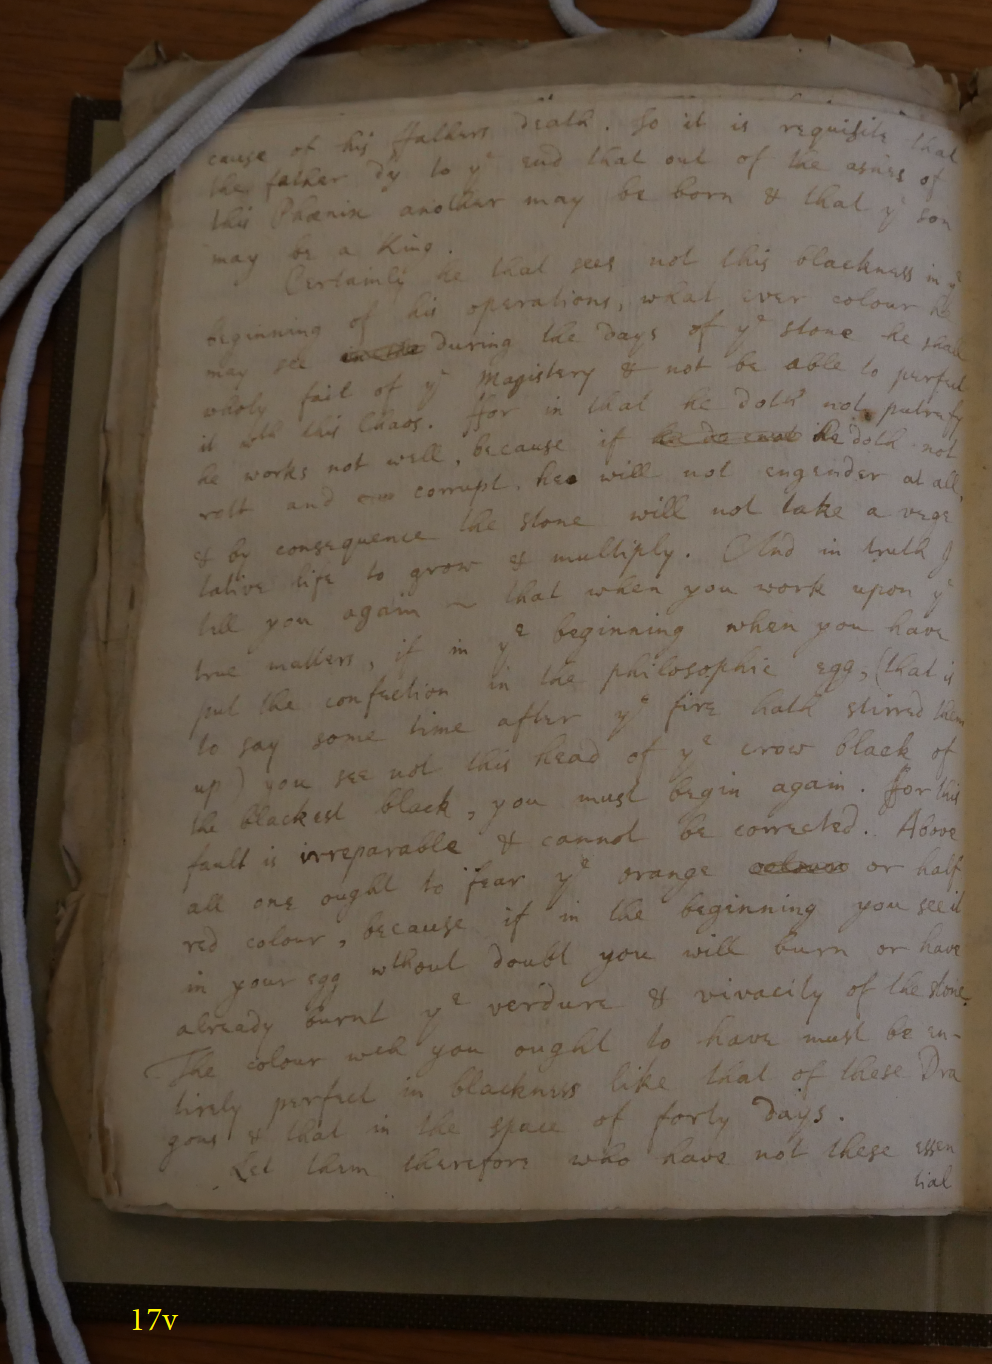 cause of his ffathers death. So it is requisite that
the father dy to yᵉ end that out of the ashes of
this Phœnix another may be born & that yᵉ son
may be a King.
Certainly he that sees not this blackness in yᵉ
beginning of his operations, what ever colour he
may see in the during the days of yᵉ stone he shall
wholy fail of yᵉ Magistery & not be able to perfect
it wth this Chaos. ffor in that he doth not putrefy
he works not well, because if he do not he doth not
rott and corrupt, he will not engender at all,
& by consequence the stone will not take a vege
tative life to grow & multiply. And in truth I
tell you again that when you work upon yᵉ
true matters, if in yᵉ beginning when you have
put the confection in the philosophic egg, (that is
to say some time after yᵉ fire hath stirred them
up) you see not this head of yᵉ crow black of
the blackest black, you must begin again. ffor this
fault is irreparable & cannot be corrected. Above
all one ought to fear yᵉ orange colour or half
red colour, because if in the beginning you see it
in your egg wthout doubt you will burn or have
already burnt yᵉ verdure & vivacity of the stone.
The colour wch you ought to have must be en-
tirely perfect in blackness like that of these Dra
gons & that in the space of forty days.
Let them therefore who have not these essen
tial
17v